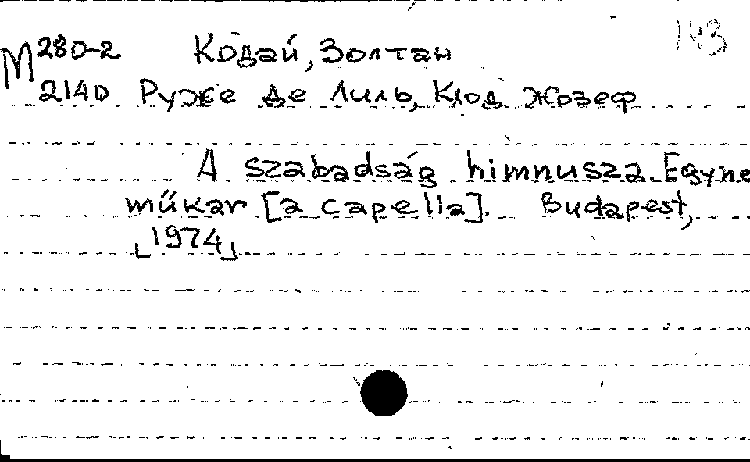 143
М 280-2 Кодай, Золтан
2140 Руже де Лиль, Клод Жозеф
A szabadság himnusza. Egyne
műkar [a capella]. Budapest,
⌊1974⌋